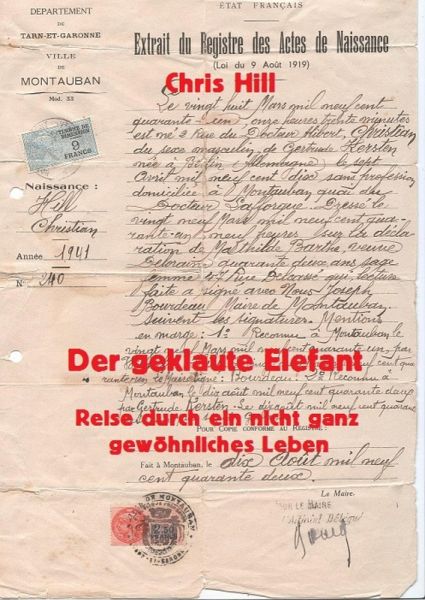 DEPARTEMENT
DE
TARN-ET-GARONNE
VILLE
DE
MONTAUBAN
Mod. 33
ÉTAT FRANÇAIS
Extrait du Registre des Actes de Naissance
(Loi du 9 Août 1919)
Chris Hill
9
FRANCS
Le vingt huit Mars mil neuf cent
quarante un onze heures trente minutes
est né 2 Rue du Docteur Christian
du sexe masculin, de Gertrude Kersten
née à Berlin (Allemagne) le sept
Avril mil neuf cent dix sans profession
domiciliée à Montauban quai du
Docteur Lafforgue. Dressé le
vingt neuf Mars mil neuf cent qua-
rante-un neuf heures sur la décla-
ration de Mathilde Barthe, veuve
quarante deux ans sage
femme Rue qui, lecture
faite a signé avec Nous Joseph
Bourdeau Maire de Montauban
suivent les signatures. Mentions
en marge: 1º Reconnu à Montauban le
vingt Mars mil neuf cent quarante un, par
Naissance :
Hill
Christian
Année 1941
N° 240
Der geklaute Elefant
Bourdeau. 2º Reconnu à
Montauban le dix août mil neuf cent quarante deux
par Gertrude Kersten. Le dix août mil neuf cent quarante
Reise durch ein nicht ganz
gewöhnliches Leben
POUR COPIE CONFORME AU REGISTRE :
Fait à Montauban, le dix Août mil neuf
cent quarante deux.
Le Maire,
POUR LE MAIRE
MONTAUBAN
2.50